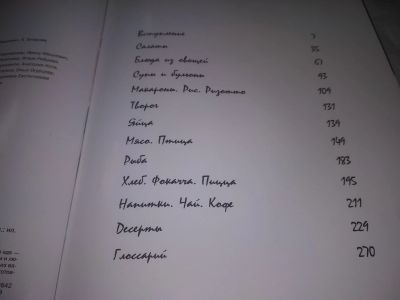 Вступление 7
Салаты 35
Блюда из овощей 61
Супы и бульоны 93
Макароны. Рис. Ризотто 109
Творог 131
Яйца 139
Мясо. Птица 149
Рыба 183
Хлеб. Фокачча. Пицца 195
Напитки. Чай. Кофе 211
Десерты 229
Глоссарий 270